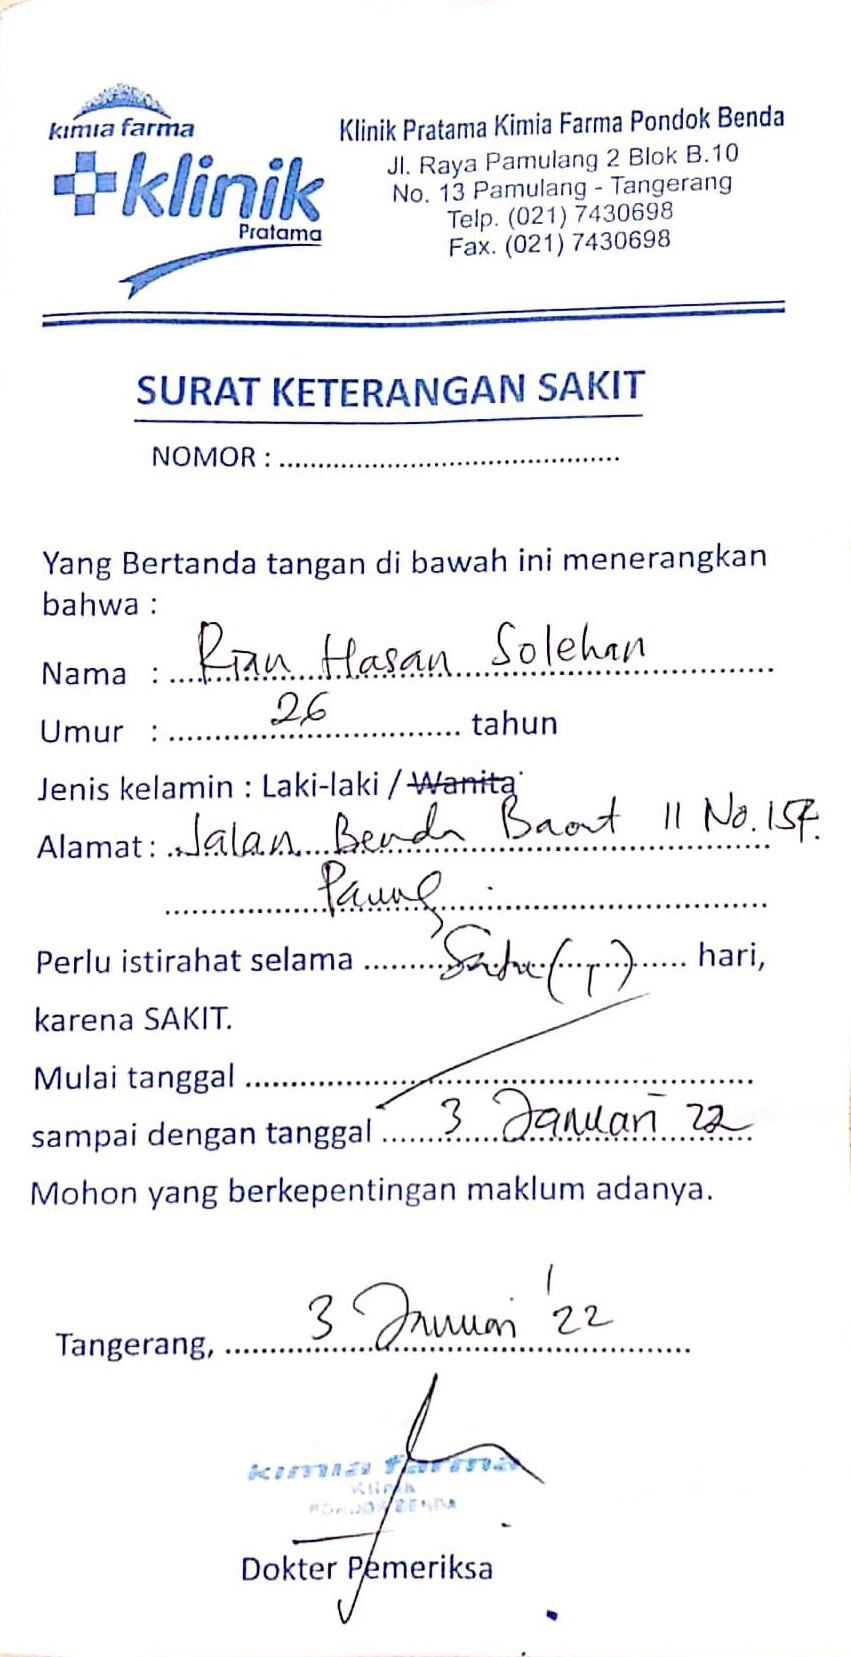 kimia farma
klinik
Pratama
Klinik Pratama Kimia Farma Pondok Benda
Jl. Raya Pamulang 2 Blok B.10
No. 13 Pamulang - Tangerang
Telp. (021) 7430698
Fax. (021) 7430698
SURAT KETERANGAN SAKIT
NOMOR : ..............................................
Yang Bertanda tangan di bawah ini menerangkan
bahwa :
Nama : Rian Hasan Solehan
Umur : 26 tahun
Jenis kelamin : Laki-laki / Wanita
Alamat : Jalan Benda Barat 11 No. 15
Perlu istirahat selama Satu (1) hari,
karena SAKIT.
Mulai tanggal ..............................................
sampai dengan tanggal 3 Januari 22
Mohon yang berkepentingan maklum adanya.
Tangerang, 3 Januari '22
kimia farma
Klinik
PONDOK BENDA
Dokter Pemeriksa